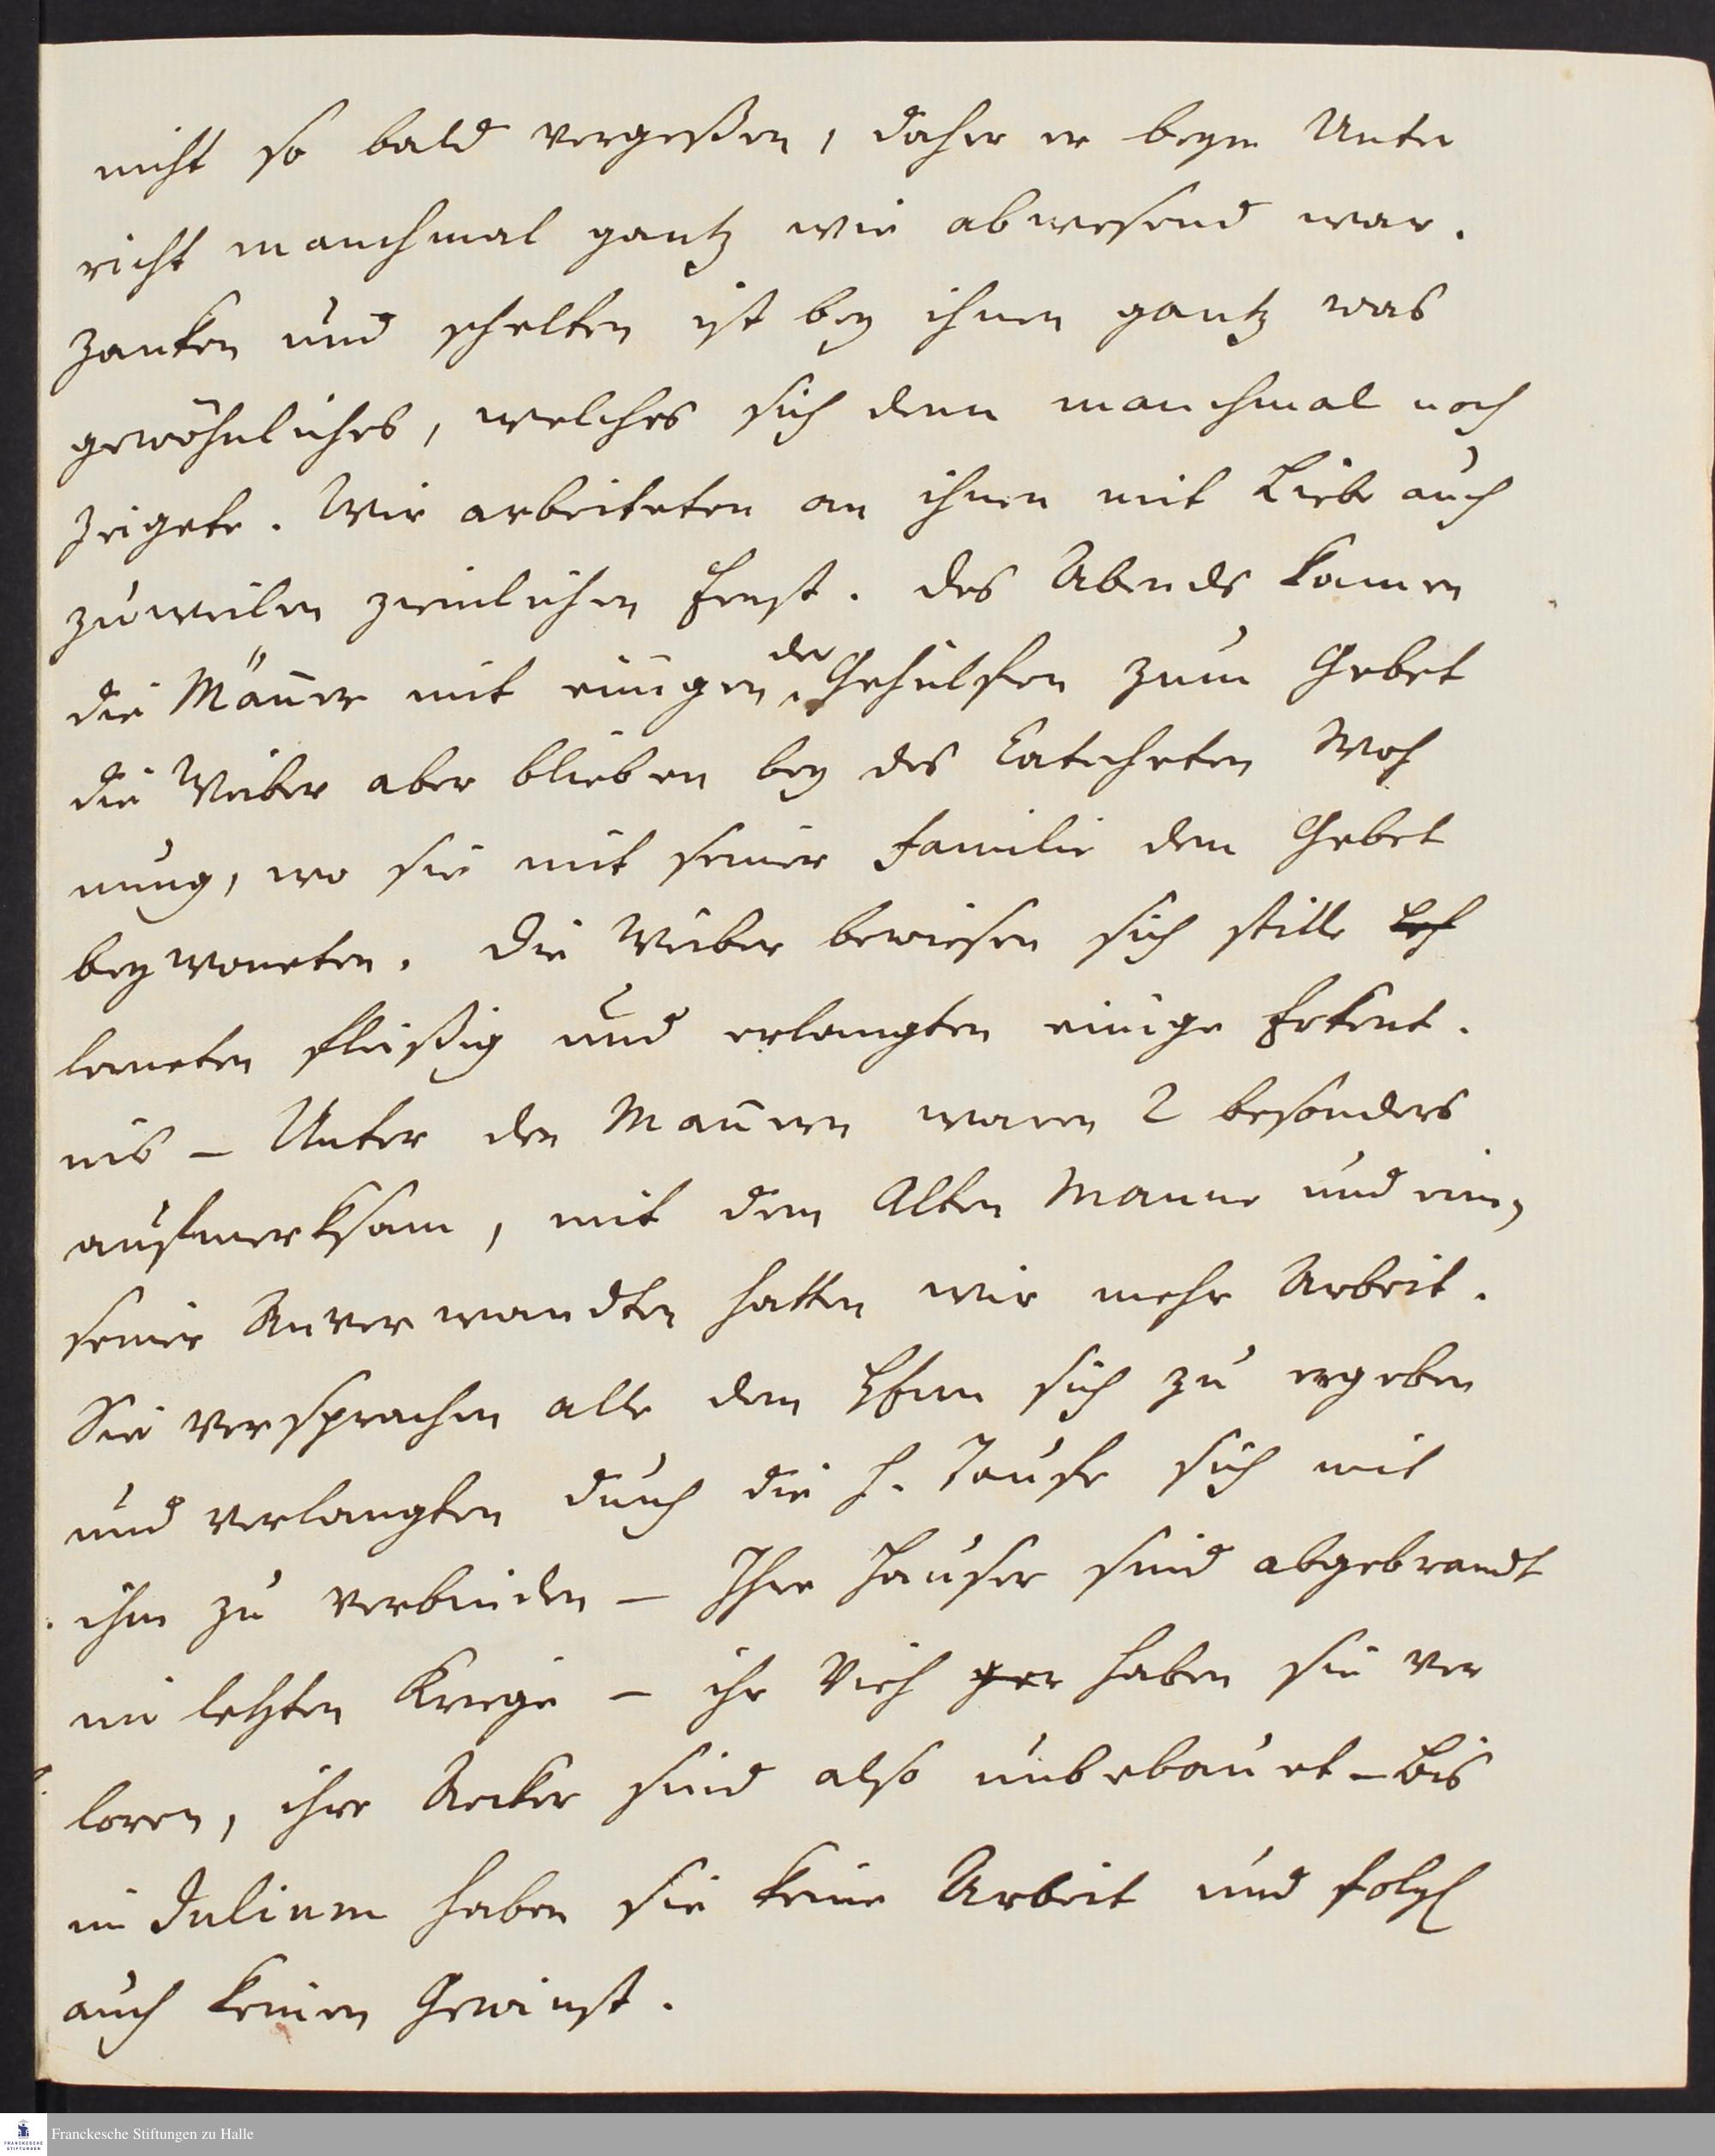 nicht so bald vergeßen, daher er beym Unter
richt manchmal gantz wie abwesend war.
Zanken und schelten ist bey ihnen gantz was
gewöhnliches, welches sich denn manchmal noch
zeigete. Wir arbeiteten an ihnen mit Liebe auch
zuweilen ziemlichen Ernst. Des Abends kamen
die Mäñer mit einigen der Gehülfen zum Gebet
die Weiber aber blieben bey des Catecheten Woh
nung, wo sie mit seiner Familie dem Gebet
beywoneten. Die Weiber bewiesen sich stille
lerneten fleißig und erlangten einige Erkent.
nis – Unter den Mañern waren 2 besonders
aufmerksam, mit dem Alten Manne und einen
seiner Anverwandten hatten wir mehr Arbeit.
Sie versprachen alle dem HErrn sich zu ergeben
und verlangten durch die H. Taufe sich mit
ihm zu verbinden – Ihre Häuser sind abgebrandt
im letzten Kriege – ihr Vieh ger haben sie ver
loren, ihre Aecker sind also unbebauet – Bis
im Julium haben sie keine Arbeit und folgl
auch keinen Gewinst.
Franckesche Stiftungen zu Halle